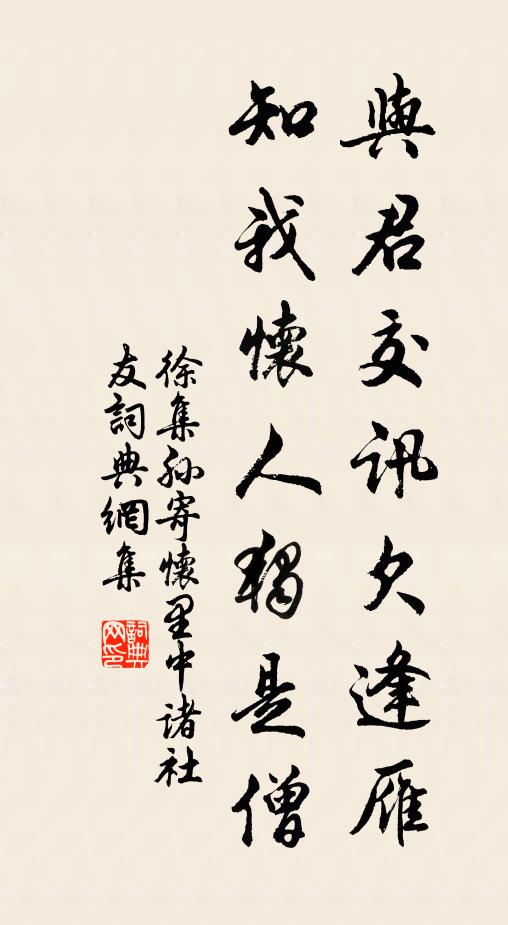 與君交訊欠逢雁
知我懷人獨是僧
徐集孫寄懷里中諸社
友詞典網集
詞典網印